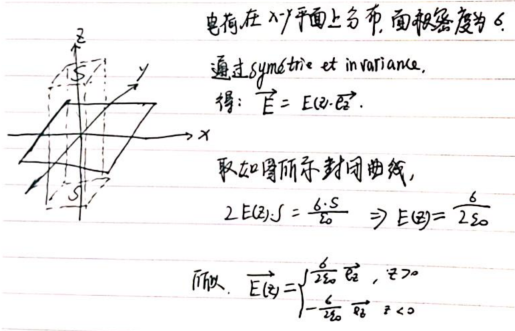 电荷在 x-y 平面上分布, 面积密度为 σ.
通过 symétrie et invariance,
得: \vec{E} = E(z)·\vec{e_z}.
取如图所示封闭曲线,
2E(z)·S = \frac{σ·S}{ε_0} ⇒ E(z) = \frac{σ}{2ε_0}
所以. \vec{E(z)} = \begin{cases} \frac{σ}{2ε_0} \vec{e_z}, z>0 \\ -\frac{σ}{2ε_0} \vec{e_z} z<0 \end{cases}
z
S
y
x
S